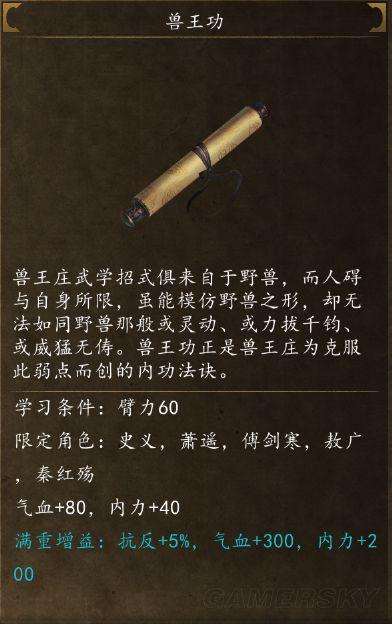 兽王功
兽王庄武学招式俱来自于野兽，而人碍
与自身所限，虽能模仿野兽之形，却无
法如同野兽那般或灵动、或力拔千钧、
或威猛无俦。兽王功正是兽王庄为克服
此弱点而创的内功法诀。
学习条件：臂力60
限定角色：史义，萧遥，傅剑寒，敖广
，秦红殇
气血+80，内力+40
满重增益：抗反+5%，气血+300，内力+2
00
GAMERSKY